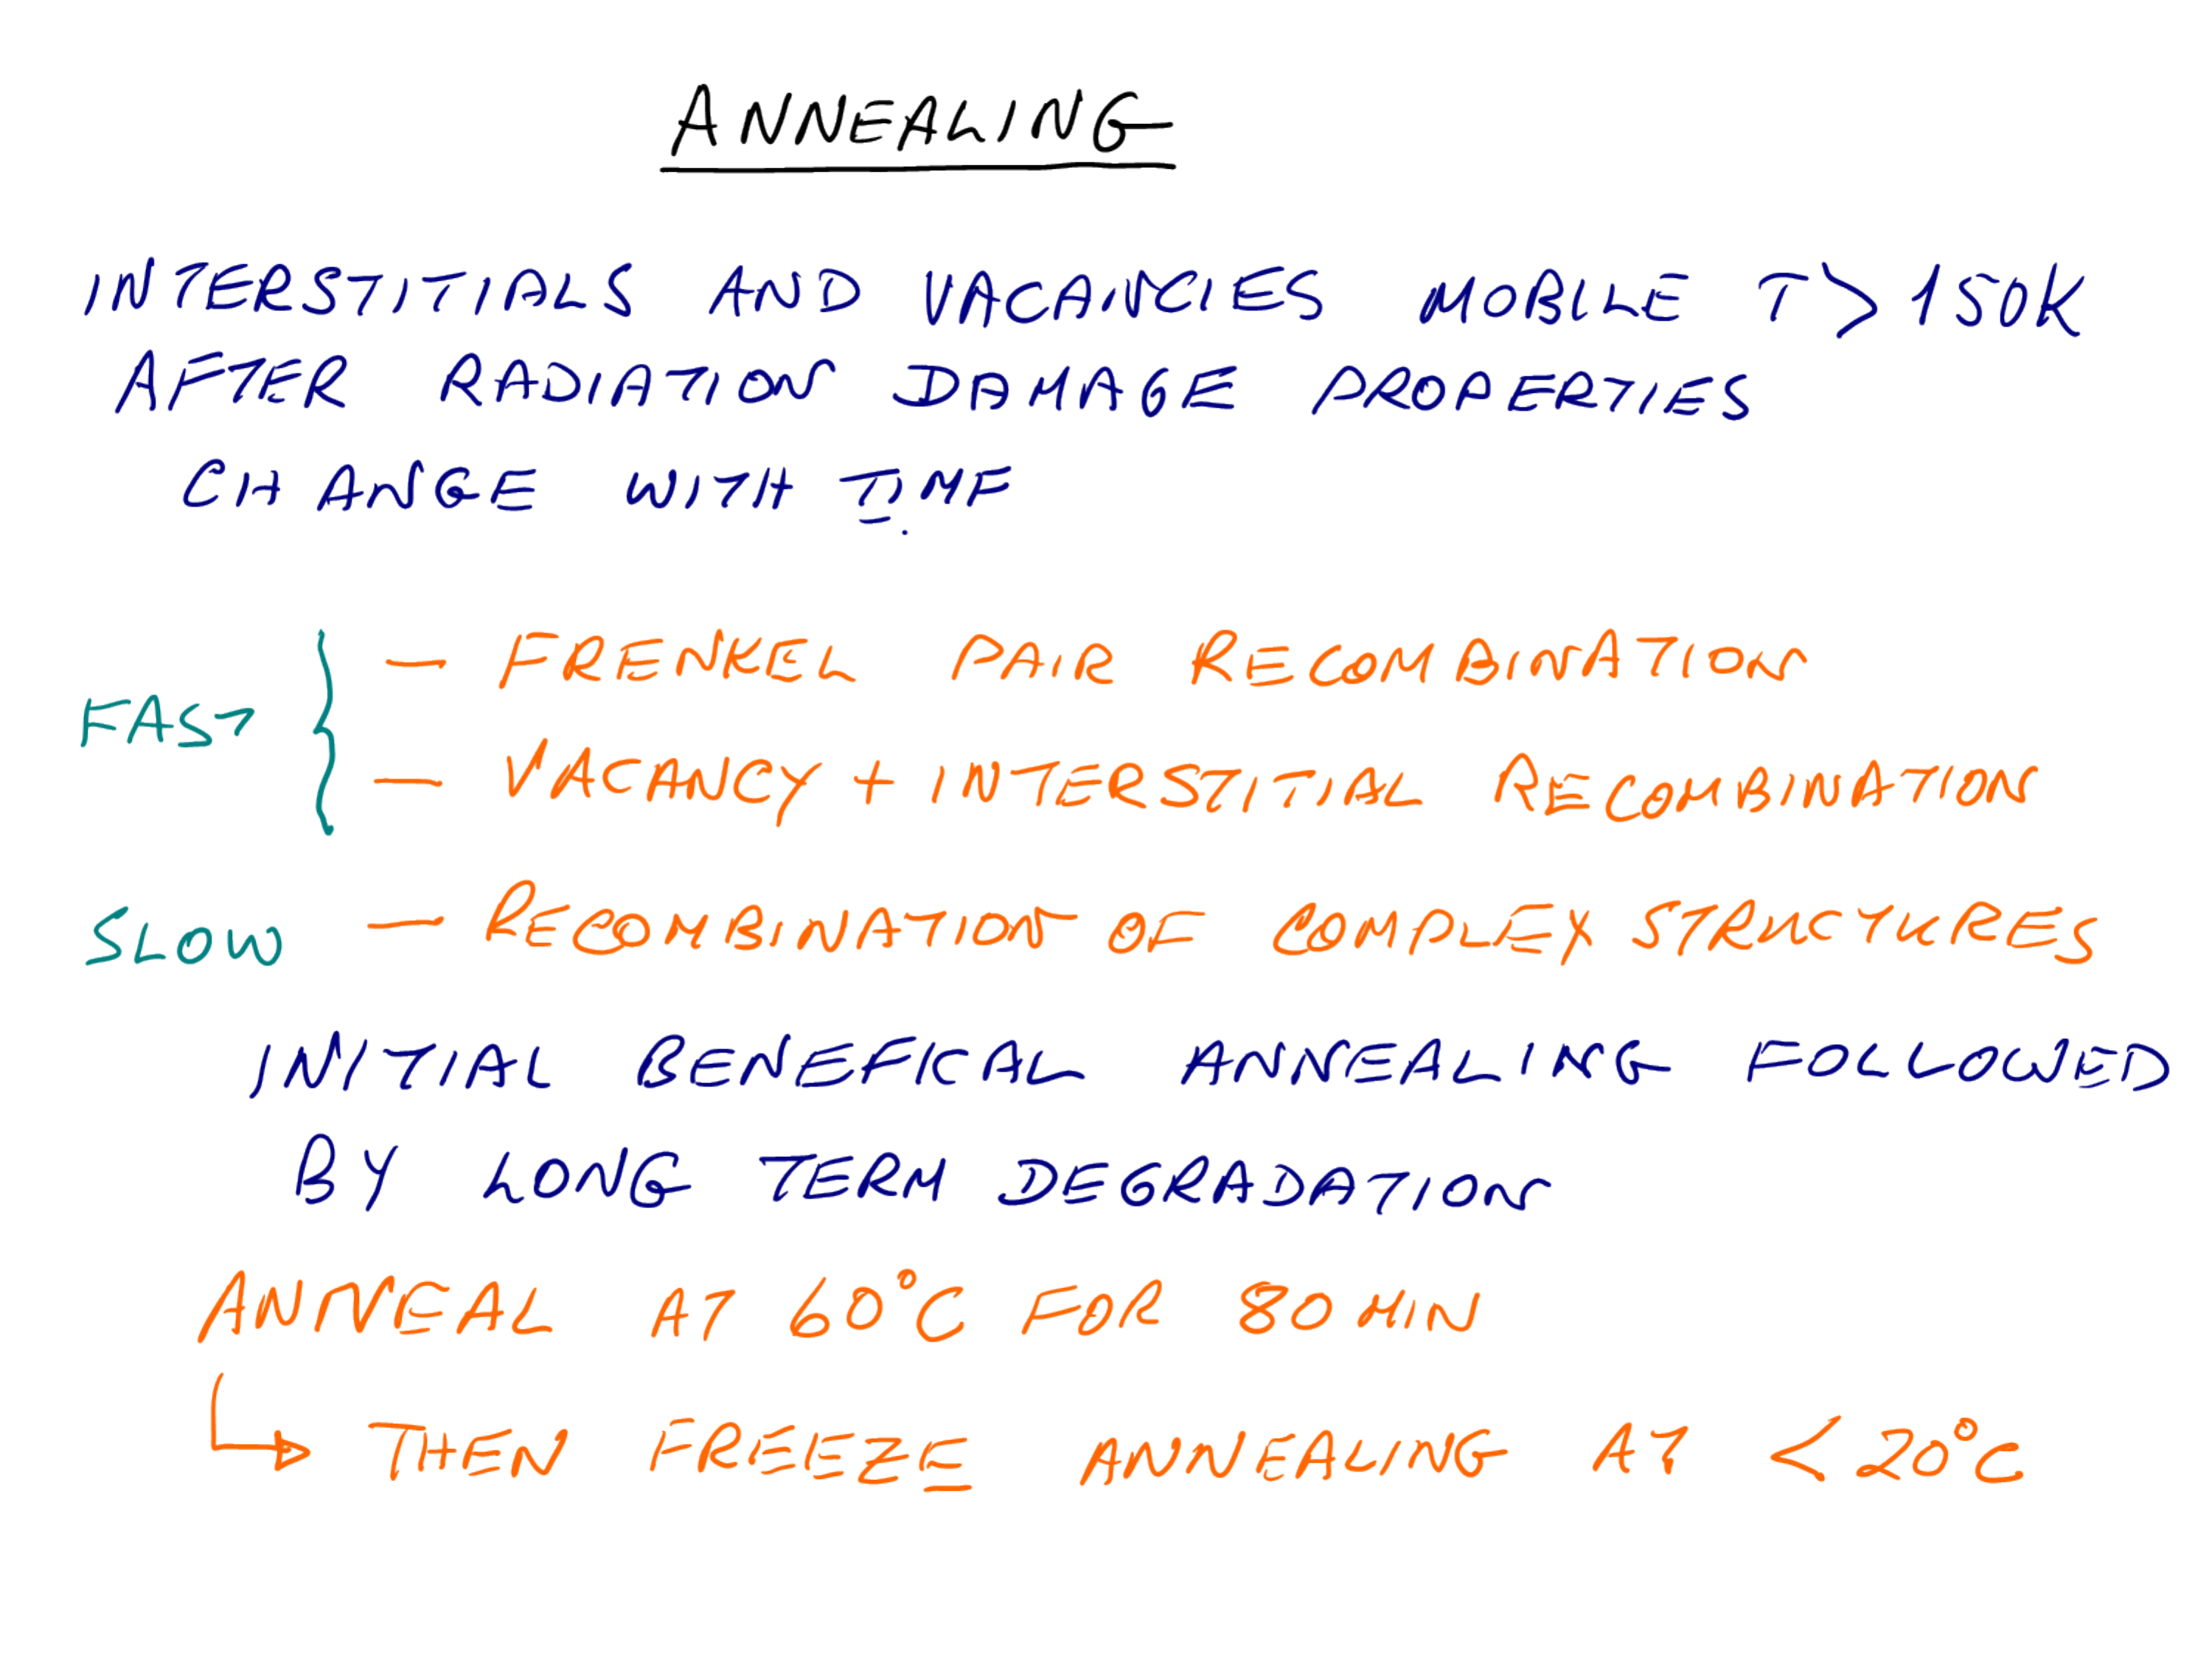 ANNEALING
INTERSTITIALS AND VACANCIES MOBILE T > 150K
AFTER RADIATION DAMAGE PROPERTIES
CHANGE WITH TIME
FAST { — FRENKEL PAIR RECOMBINATION
— VACANCY + INTERSTITIAL RECOMBINATION
SLOW — RECOMBINATION OF COMPLEX STRUCTURES
INITIAL BENEFICAL ANNEALING FOLLOWED
BY LONG TERM DEGRADATION
ANNEAL AT 60°C FOR 80 MIN
↳ THEN FREEZE ANNEALING AT < 20°C